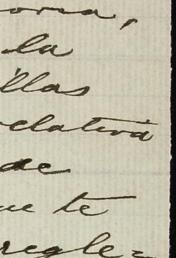 oria,
la
illas
relativa
de
ue te
regle=